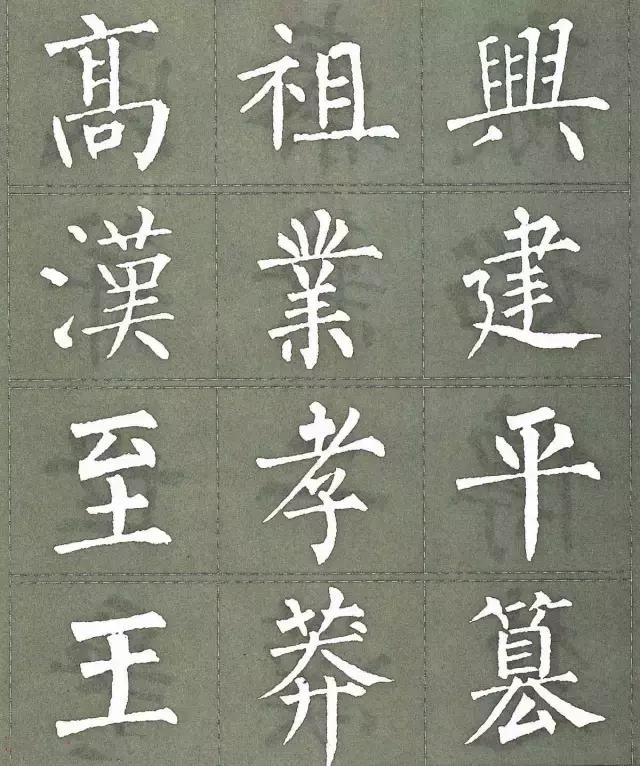 高祖興
漢業建
至孝平
王莽篡